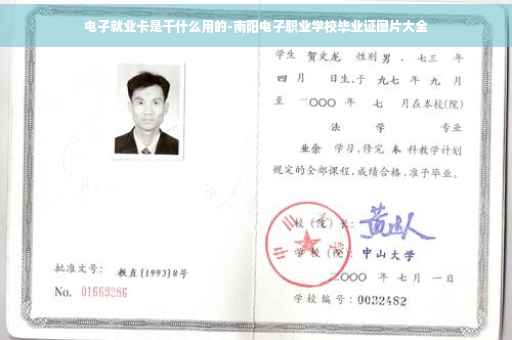 电子就业卡是干什么用的-南阳电子职业学校毕业证图片大全
学生 贺文龙 性别 男 、七三 年
四 月 日生,于 九七 年 九 月
至 二〇〇〇 年 七 月在本校(院)
法 学 专业
业余 学习,修完 本 科教学计划
规定的全部课程,成绩合格,准予毕业。
校(院)长:
学校(院): 中山大学
二〇〇〇 年 七 月 一 日
学校编号: 0032482
批准文号: 教直[1993]8号
No. 01669286